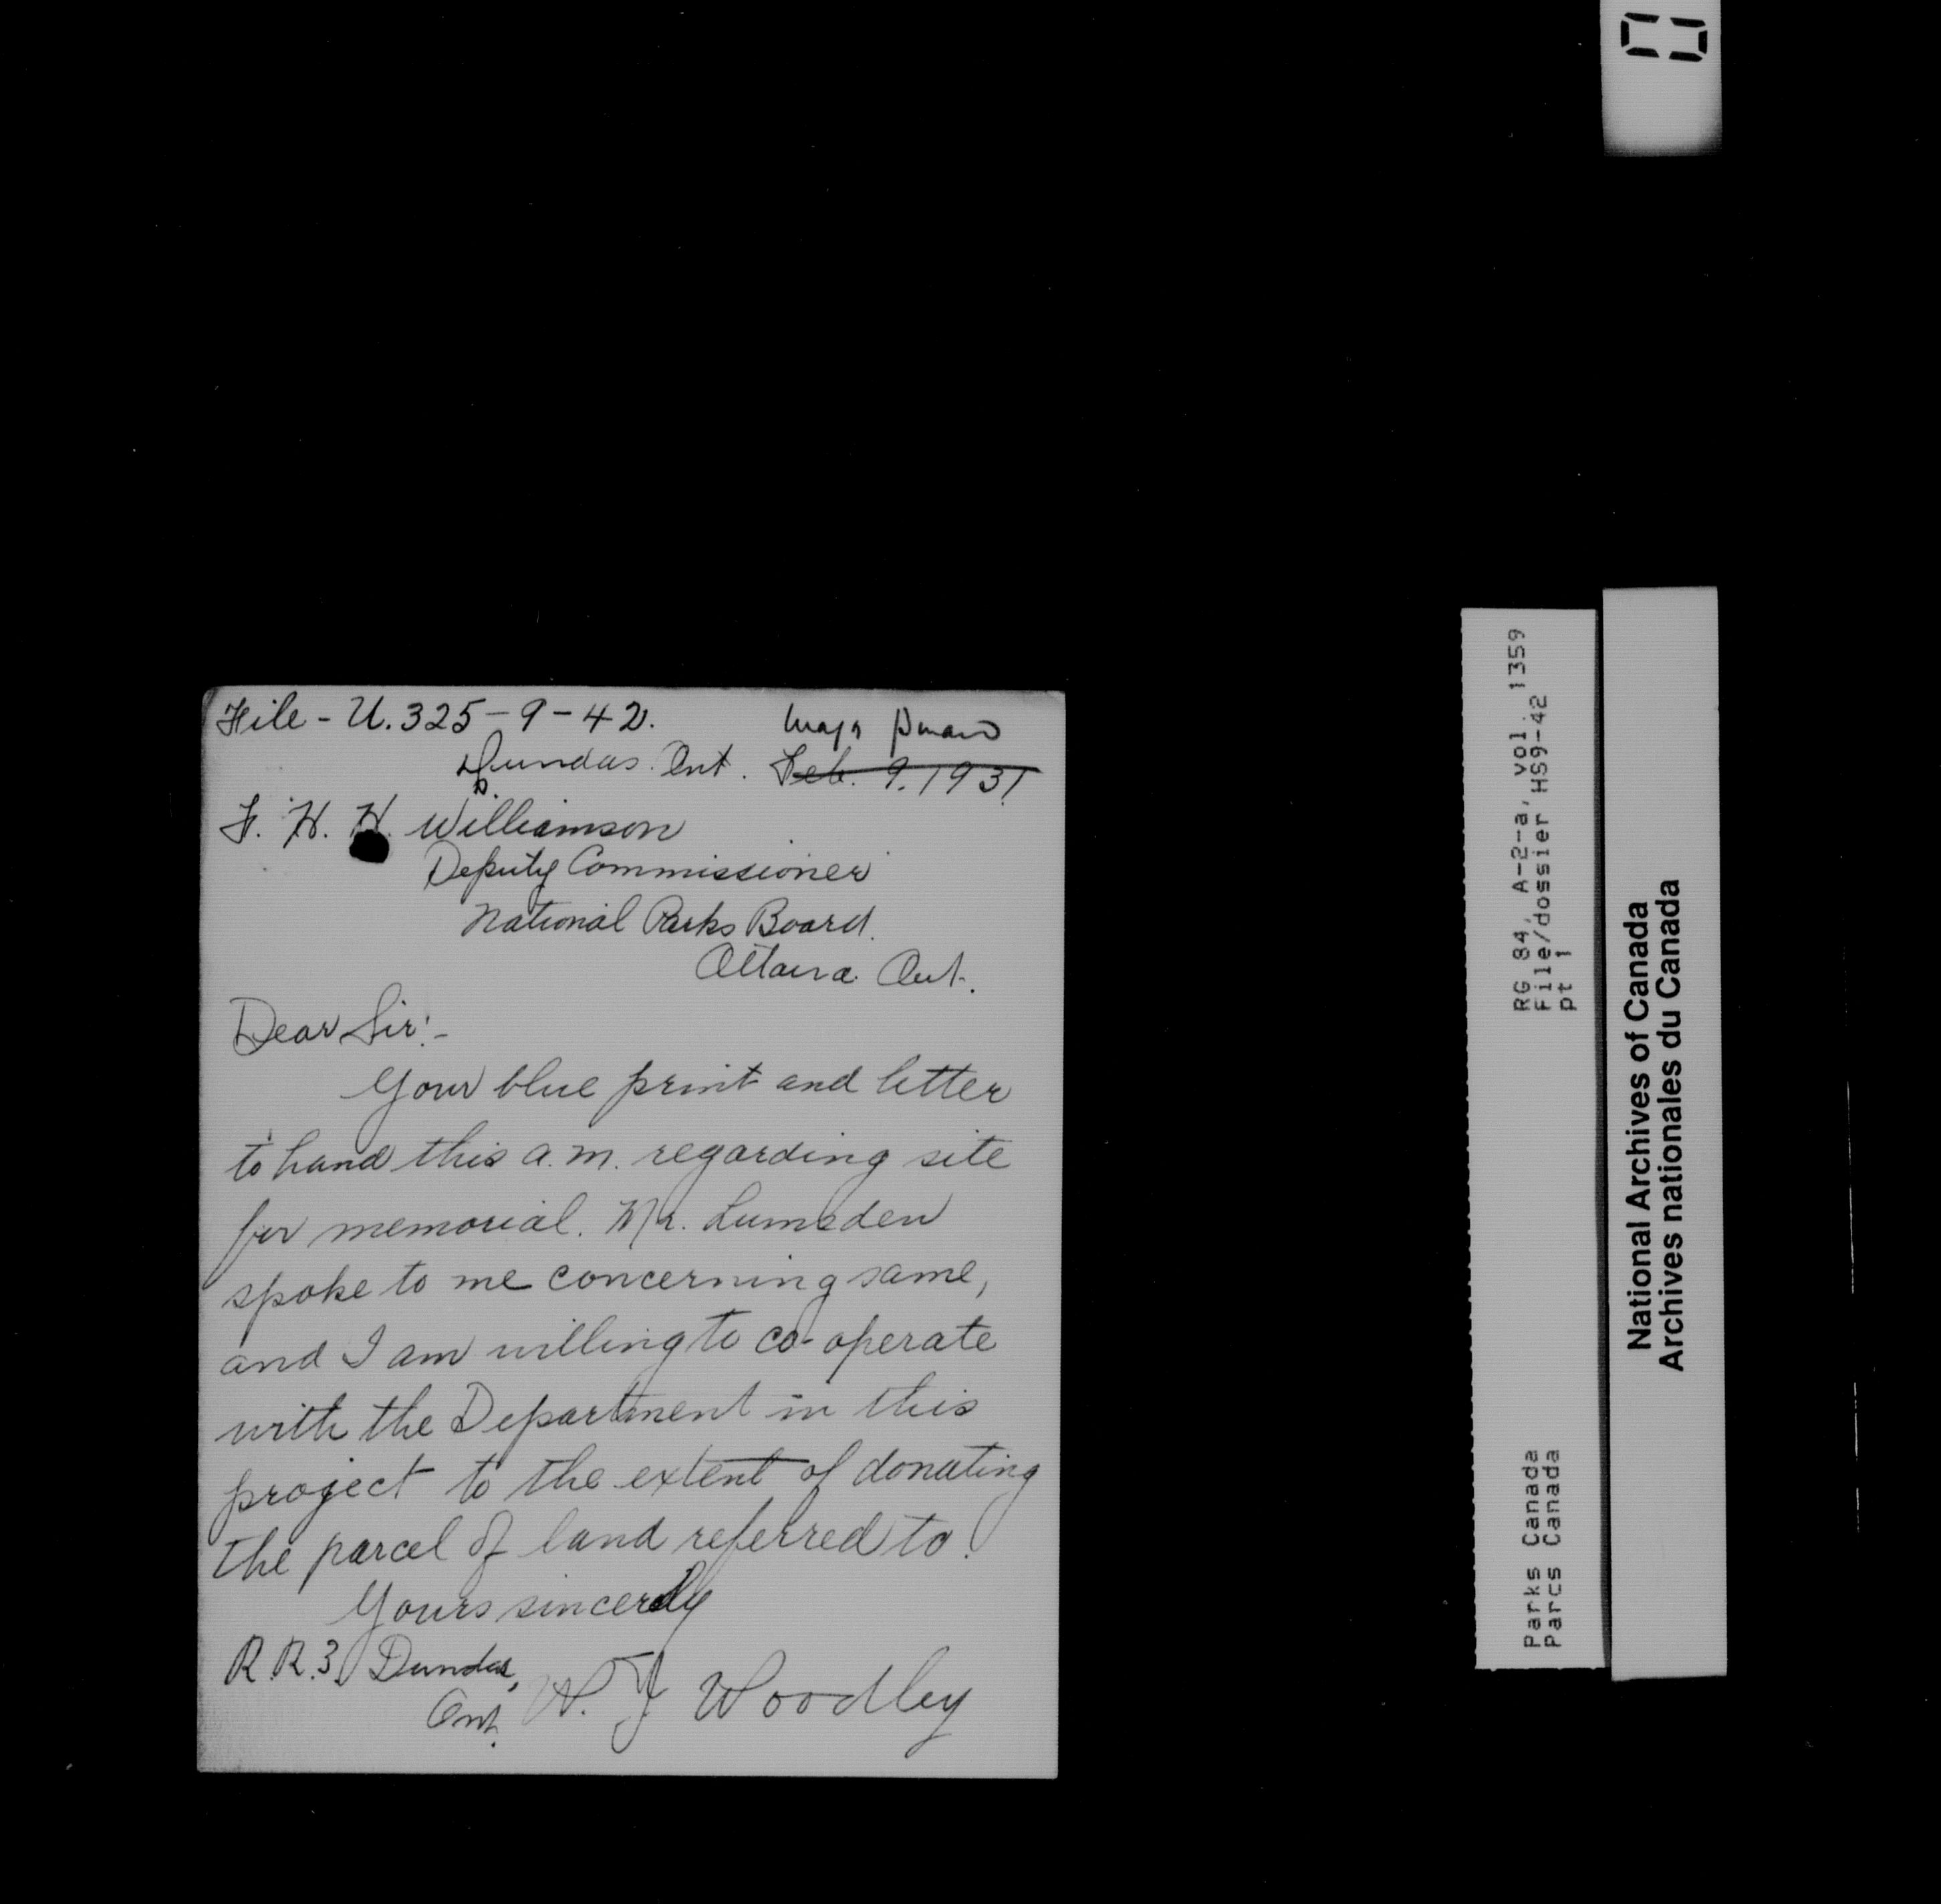 File - U.325-9-42.
Dundas. Ont. Feb. 9. 1931
F. H. H. Williamson
Deputy Commissioner
National Parks Board.
Ottawa Ont.
Dear Sir:-
Your blue print and letter
to hand this a.m. regarding site
for memorial. Mr. Lumsden
spoke to me concerning same,
and I am willing to co-operate
with the Department in this
project to the extent of donating
the parcel of land referred to.
Yours sincerely
R.R.3, Dundas,
Ont. W. J Woodley
RG 84, A-2-a, vol. 1359
File/dossier HS9-42
pt 1
Parks Canada
Parcs Canada
National Archives of Canada
Archives nationales du Canada